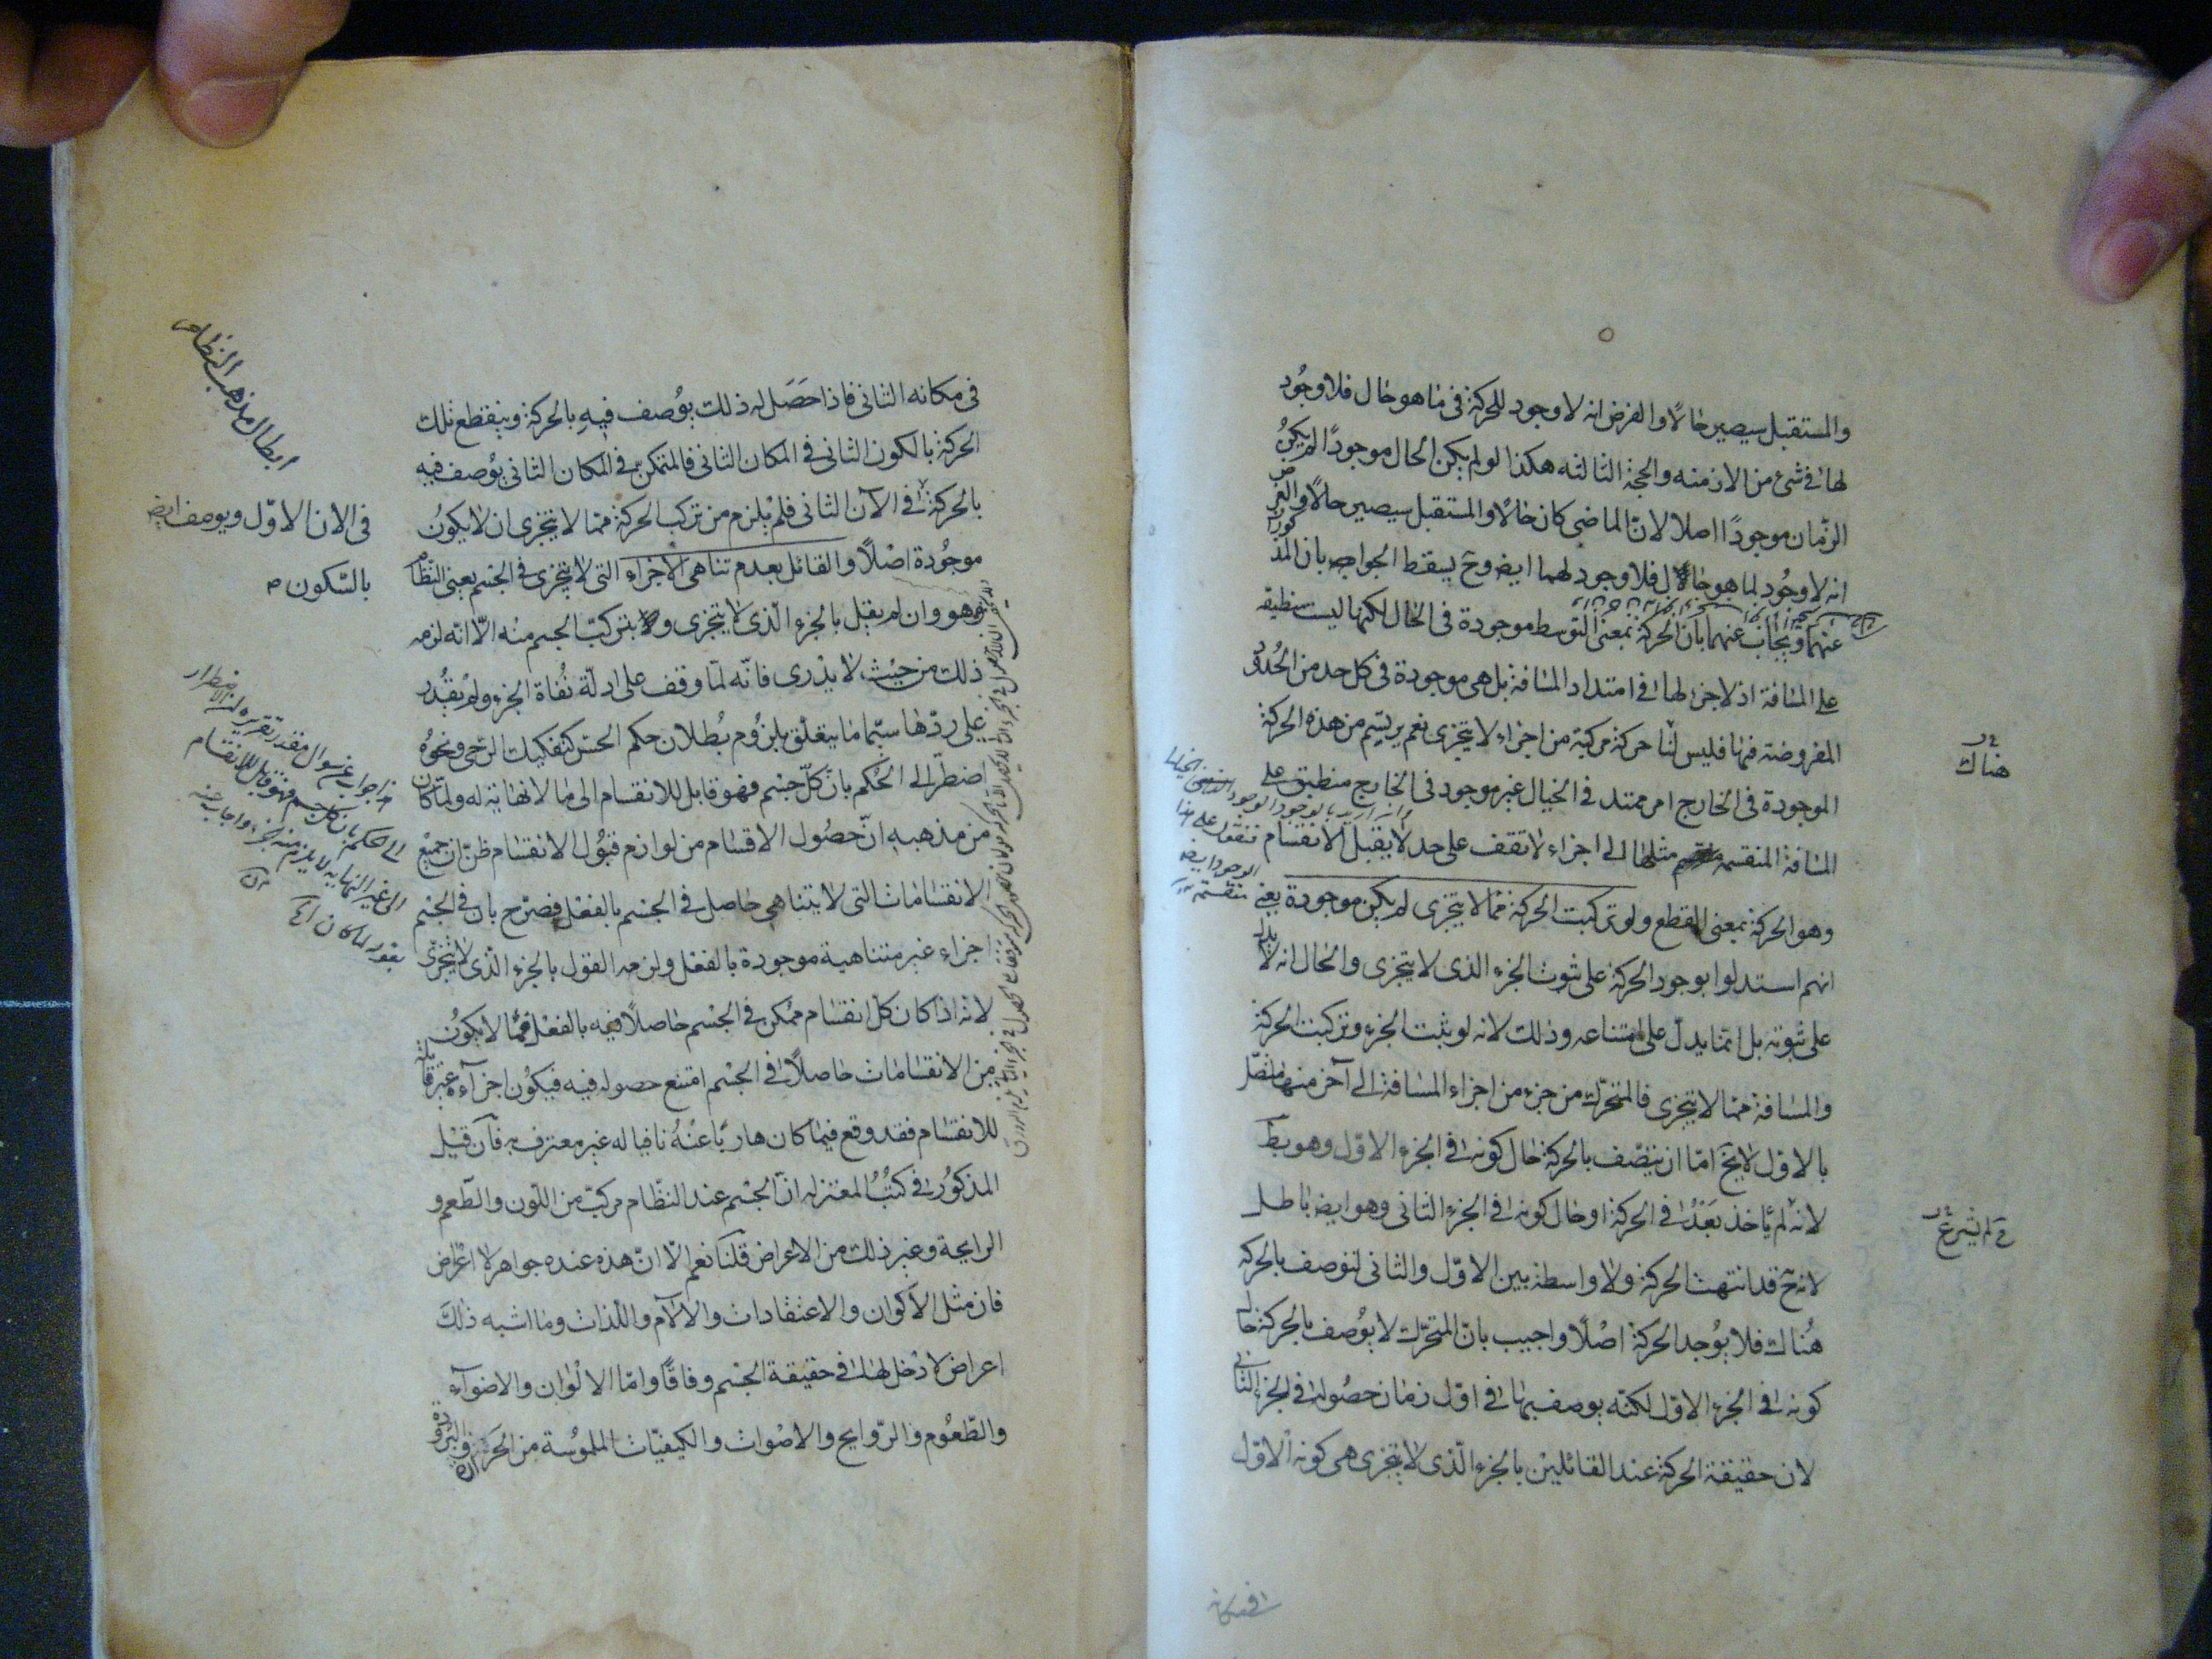 والمستقبل سيصير حالًا والفرض انه لا وجود للحركة فى ما هو حال فلا وجُود
لها فى شئ من الازمنه والحجة الثالثه هكذا لو لم يكن الحال موجودًا لم يكنُ
الزّمان موجودًا اصلا لانّ الماضى كان حالًا والمستقبل سيصير حالًا والفرض
انه لا وجُود لما هو حال فلا وجود لهما ايض وح يسقط الجواب بان المذكور
عنهما ويجاب عنهما بان الحركة بمعنى التوسط موجودة فى الحال لكنها ليست منطبقه
على المسافة اذ لا جزء لها فى امتداد المسافة بل هى موجودة فى كل حد من الحُدود
المفروضة فيها فليس لنا حركة مركبة من اجزاء لا يتجزى نعم يرتسم من هذه الحركة
الموجودة فى الخارج امر ممتد فى الخيال غير موجود فى الخارج منطبق على
المسافة المنقسمه مثلها الى اجزاء لا تقف على حد لا يقبل الانقسام
وهو الحركة بمعنى القطع ولو تركبت الحركة مما لا يتجزى لم يكن موجودة يعنى
انهم استدلوا بوجود الحركة على ثبوت الجزء الذى لا يتجزى والحال انه لا يدل
على ثبوته بل انما يدلّ على امتناعه وذلك لانه لو يثبت الجزء وتركبت الحركة
والمسافة مما لا يتجزى فالمتحرّك من جزء من اجزاء المسافة الى آخر منها متصّل
بالاوّل لا يخ امّا ان يتصف بالحركة حال كونه فى الجزء الاوّل وهو بط
لانه لم يأخذ بَعْدُ فى الحركة او حال كونه فى الجزء الثانى وهو ايض باطل
لانه ح قد انتهت الحركة ولا واسطة بين الاوّل والثانى لتوصف بالحركة
هُناك فلا يوُجد الحركة اصْلًا واجيب بانّ المتحرّك لا يوُصف بالحركة حال
كونه فى الجزء الاوّل لكنّه يوصف بها فى اوّل زمان حصُوله فى الجزء الثانى
لان حقيقة الحركة عند القائلين بالجزء الّذى لا يتجزى هى كونه الاوّل
هناك
لم يشرع
فى مكانه الثانى فاذا حَصَل له ذلك يوُصف فيهِ بالحركة وينقطع تلك
الحركة بالكون الثانى فى المكان الثانى فالمتمكن فى المكان الثانى يوُصف فيه
بالحركة فى الآن الثانى فلم يلزم من تركب الحركة ممّا لا يتجزى ان لا يكونُ
موجُودة اصْلًا والقائل بعدم تناهى الاجزاء التى لا يتجزى فى الجسم يعنى النّظام
وهو وان لم يقل بالجزء الّذى لا يتجزى ولا بتركبّ الجسم منْه الّا انّه لزمه
ذلك من حيْث لا يدْرى فانّه لمّا وقف على ادلّة نُفاة الجزء ولم يقْدر
على ردّها سيّما ما يتعلّق بلزوُم بُطلان حكم الحسّ كتفكيك الرّحى ونحوهُ
اضطرّ الى الحُكم بان كلّ جسْم فهو قابل للانقسام الى ما لا نهاية له ولمّا كان
من مذهبه انّ حصُول الاقسام من لوازم قبُول الانقسام ظنّ ان جميْع
الانقسامات التى لا يتناهى حاصل فى الجسْم بالفعْل فصرّح بان فى الجسْم
اجزاء غير متناهية موجودة بالفعْل ولزمه القول بالجزء الّذى لا يتجزى
لانه اذا كان كلّ انقسام ممْكن فى الجسْم حاصلًا فيه بالفعْل فما لا يكونُ
من الانقسامات حاصلاً فى الجسْم امتنع حصوله فيه فيكوُن اجزآءه غير قابلة
للانقسام فقد وقع فيما كان هاربًا عنْهُ نافيا له غير معترف به فان قيْل
المذكوُر فى كتبُ المعتزله انّ الجسْم عند النظّام مركبّ من اللّون والطّعم و
الرايحة وغير ذلك من الاعراض قلْنا نعم الّا انّ هذه عنده جواهر لا اعْراض
فان مثل الاكوان والاعتقادات والآلام واللّذات وما اشبه ذلك
اعراض لا دخْل لها فى حقيقة الجسْم وفاقًا وامّا الالْوان والاضوآء
والطّعوُم والرّوايح والاصْوات والكيفيّات الملموُسة من الحركة والبرُودة
ابطال مذهب النظام
فى الان الاوّل ويوصف ايض
بالسّكون